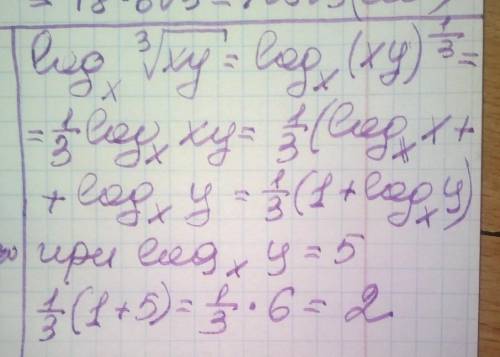 log_x ∛(xy) = log_x (xy)^(1/3) =
= 1/3 log_x xy = 1/3 (log_x x +
+ log_x y = 1/3 (1 + log_x y)
при log_x y = 5
1/3 (1+5) = 1/3 · 6 = 2